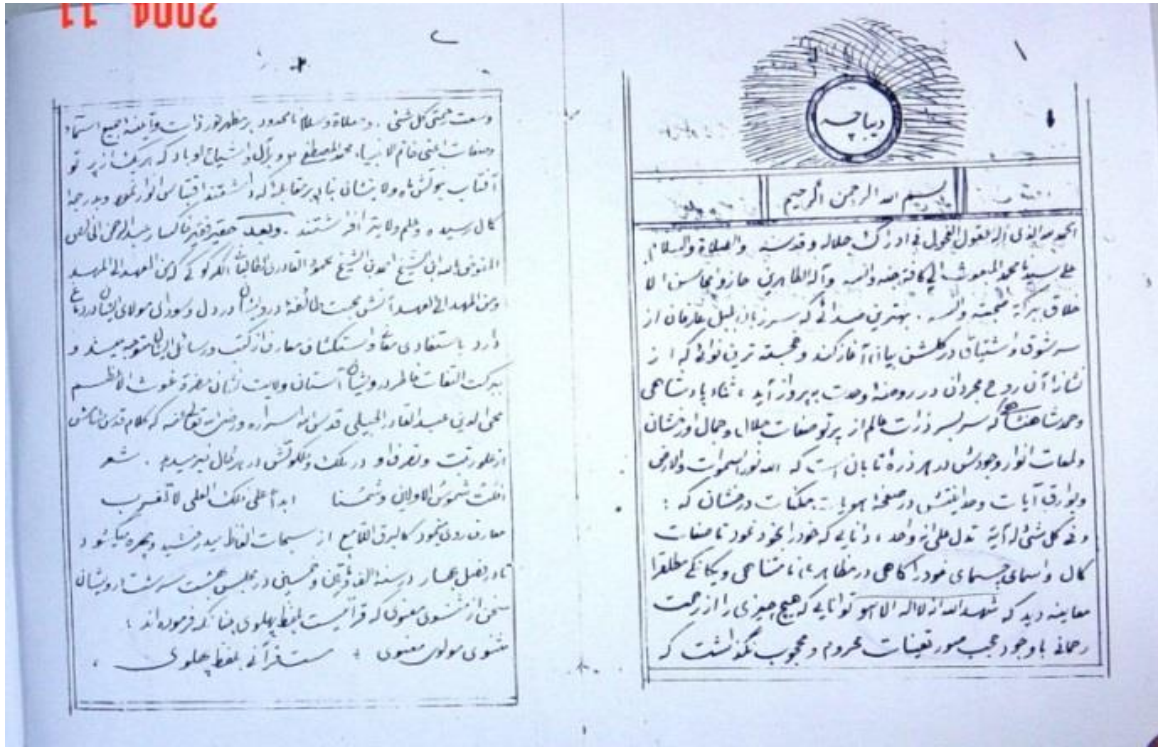 دیباچه
بسم الله الرحمن الرحیم
الحمد لله الذی العقول الفحول فی ادراک جلاله و قدسه والصلاة والسلام
علی سیدنا محمد المبعوث الی کافة جنه وانسه وآله الطاهرین
خلاق ببرکة صحبته وانسه . بهترین صدائی که سر زبان بلبل عارفان از
سر شوق و اشتیاق در گلشن بیان آغاز کند و خجسته ترین نوائی که از
آن روح مجردان در روضهٔ وحدت به پرواز آید ، ثناء پادشاهی
وحمد شاهنشاهی که سر بسر ذرات عالم از پرتو صفات جلال و جمال او رخشان
ولمعات انوار وجودش در هر ذره تابان است که الله نور السموات والارض
وبوارق آیات وحدانیتش در صفحهٔ ممکنات درخشان که :
وفی کل شئ له آیة تدل علی انه واحد ، دانایی که خود را بخود نمود تا صفات
کمال و اسمای خود را گاهی در مظاهر نامتناهی و یگانگی مطلق را
معاینه دید که شهد الله انه لا اله الا هو توانایی که هیچ چیزی را از رحمت
رحمانی با وجود حجب صور تعینات محروم و محجوب نگذاشت که
۲
وسعت رحمتی کل شئ . وصلاة وسلام نامحدود بر مظهر ذات وآینهٔ جمیع اسماء
وصفات اعنی خاتم الانبیاء محمد المصطفی و بر آل و اشیاع او باد که هر یک از پرتو
آفتاب نبوتش ماه ولایتشان اقتباس انوار نموده و بدرجهٔ
کمال رسیده و علم ولایت افراشتند . وبعد حقیر فقیر خاکسار عبدالرحمن
ابن الشیخ احمد بن الشیخ محمود القادری الطالبانی الکرکوکی که من العهد الی المهد
ومن المهد الی العهد آتش محبت طائفهٔ درویشان در دل و سودای مولای ایشان در دماغ
دارد باستفادهٔ و استکشاف معارف از کتب و رسائل ایشان متوجه میشد و
ببرکت التفات خاطر درویشان آستان ولایت نشان حضرة غوث الاعظم
محی الدین عبدالقادر الجیلی قدس الله اسراره که کلام قدسی
از علو رتبت و تصرف او در ملک و ملکوتش در هر خیال نمیرسید . شعر
افلت شموس الاولین وشمسنا ابداً علی فلک العلی لا تغرب
معارف روی بنمود کالبرق اللامع از سبحات الفاظ میدرخشید و بهره میگشود
تا در فصل بهار در سنه الف و مأتین و خمسین در مجلس بهشت سرشت درویشان
سخن از مثنوی معنوی که قرآنیست بلفظ پهلوی چنانکه فرموده اند :
مثنوی مولوی معنوی هست قرآنی بلفظ پهلوی